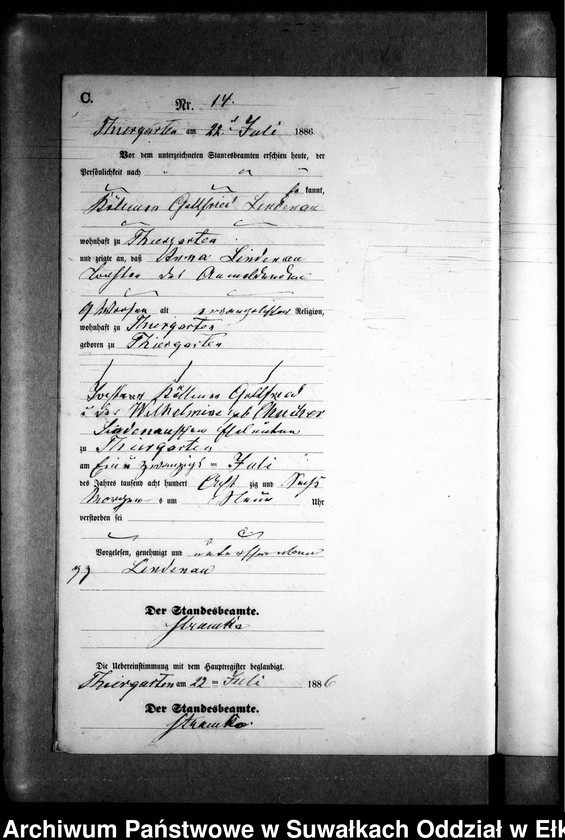 C.
Nr. 14.
Thiergarten am 22t Juli 1886.
Vor dem unterzeichneten Standesbeamten erschien heute, der
Persönlichkeit nach
be kannt,
Köllmer Gottfried Lindenau
wohnhaft zu Thiergarten
und zeigte an, daß Anna Lindenau
Tochter des Anmeldenden
9 Wochen alt evangelischer Religion,
wohnhaft zu Thiergarten
geboren zu Thiergarten
Tochter Köllmer Gottfried
u der Wilhelmine geb
Lindenauschen Eheleuten
zu Thiergarten
am Ein u zwanzigst en Juli
des Jahres tausend acht hundert Acht zig und Sechs
Morgen s um Neun Uhr
verstorben sei
Vorgelesen, genehmigt und unterschrieben
Lindenau
Der Standesbeamte.
Die Uebereinstimmung mit dem Hauptregister beglaubigt.
Thiergarten am 22 ten Juli 1886
Der Standesbeamte.
Archiwum Państwowe w Suwałkach Oddział w Ełk